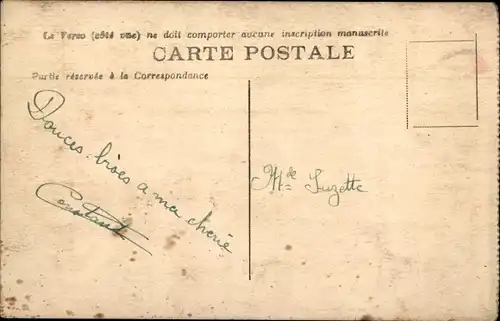 Le Verso (côté vue) ne doit comporter aucune inscription manuscrite
CARTE POSTALE
Partie réservée à la Correspondance
Douces bises a ma cherie
Constant
Mde Suzette